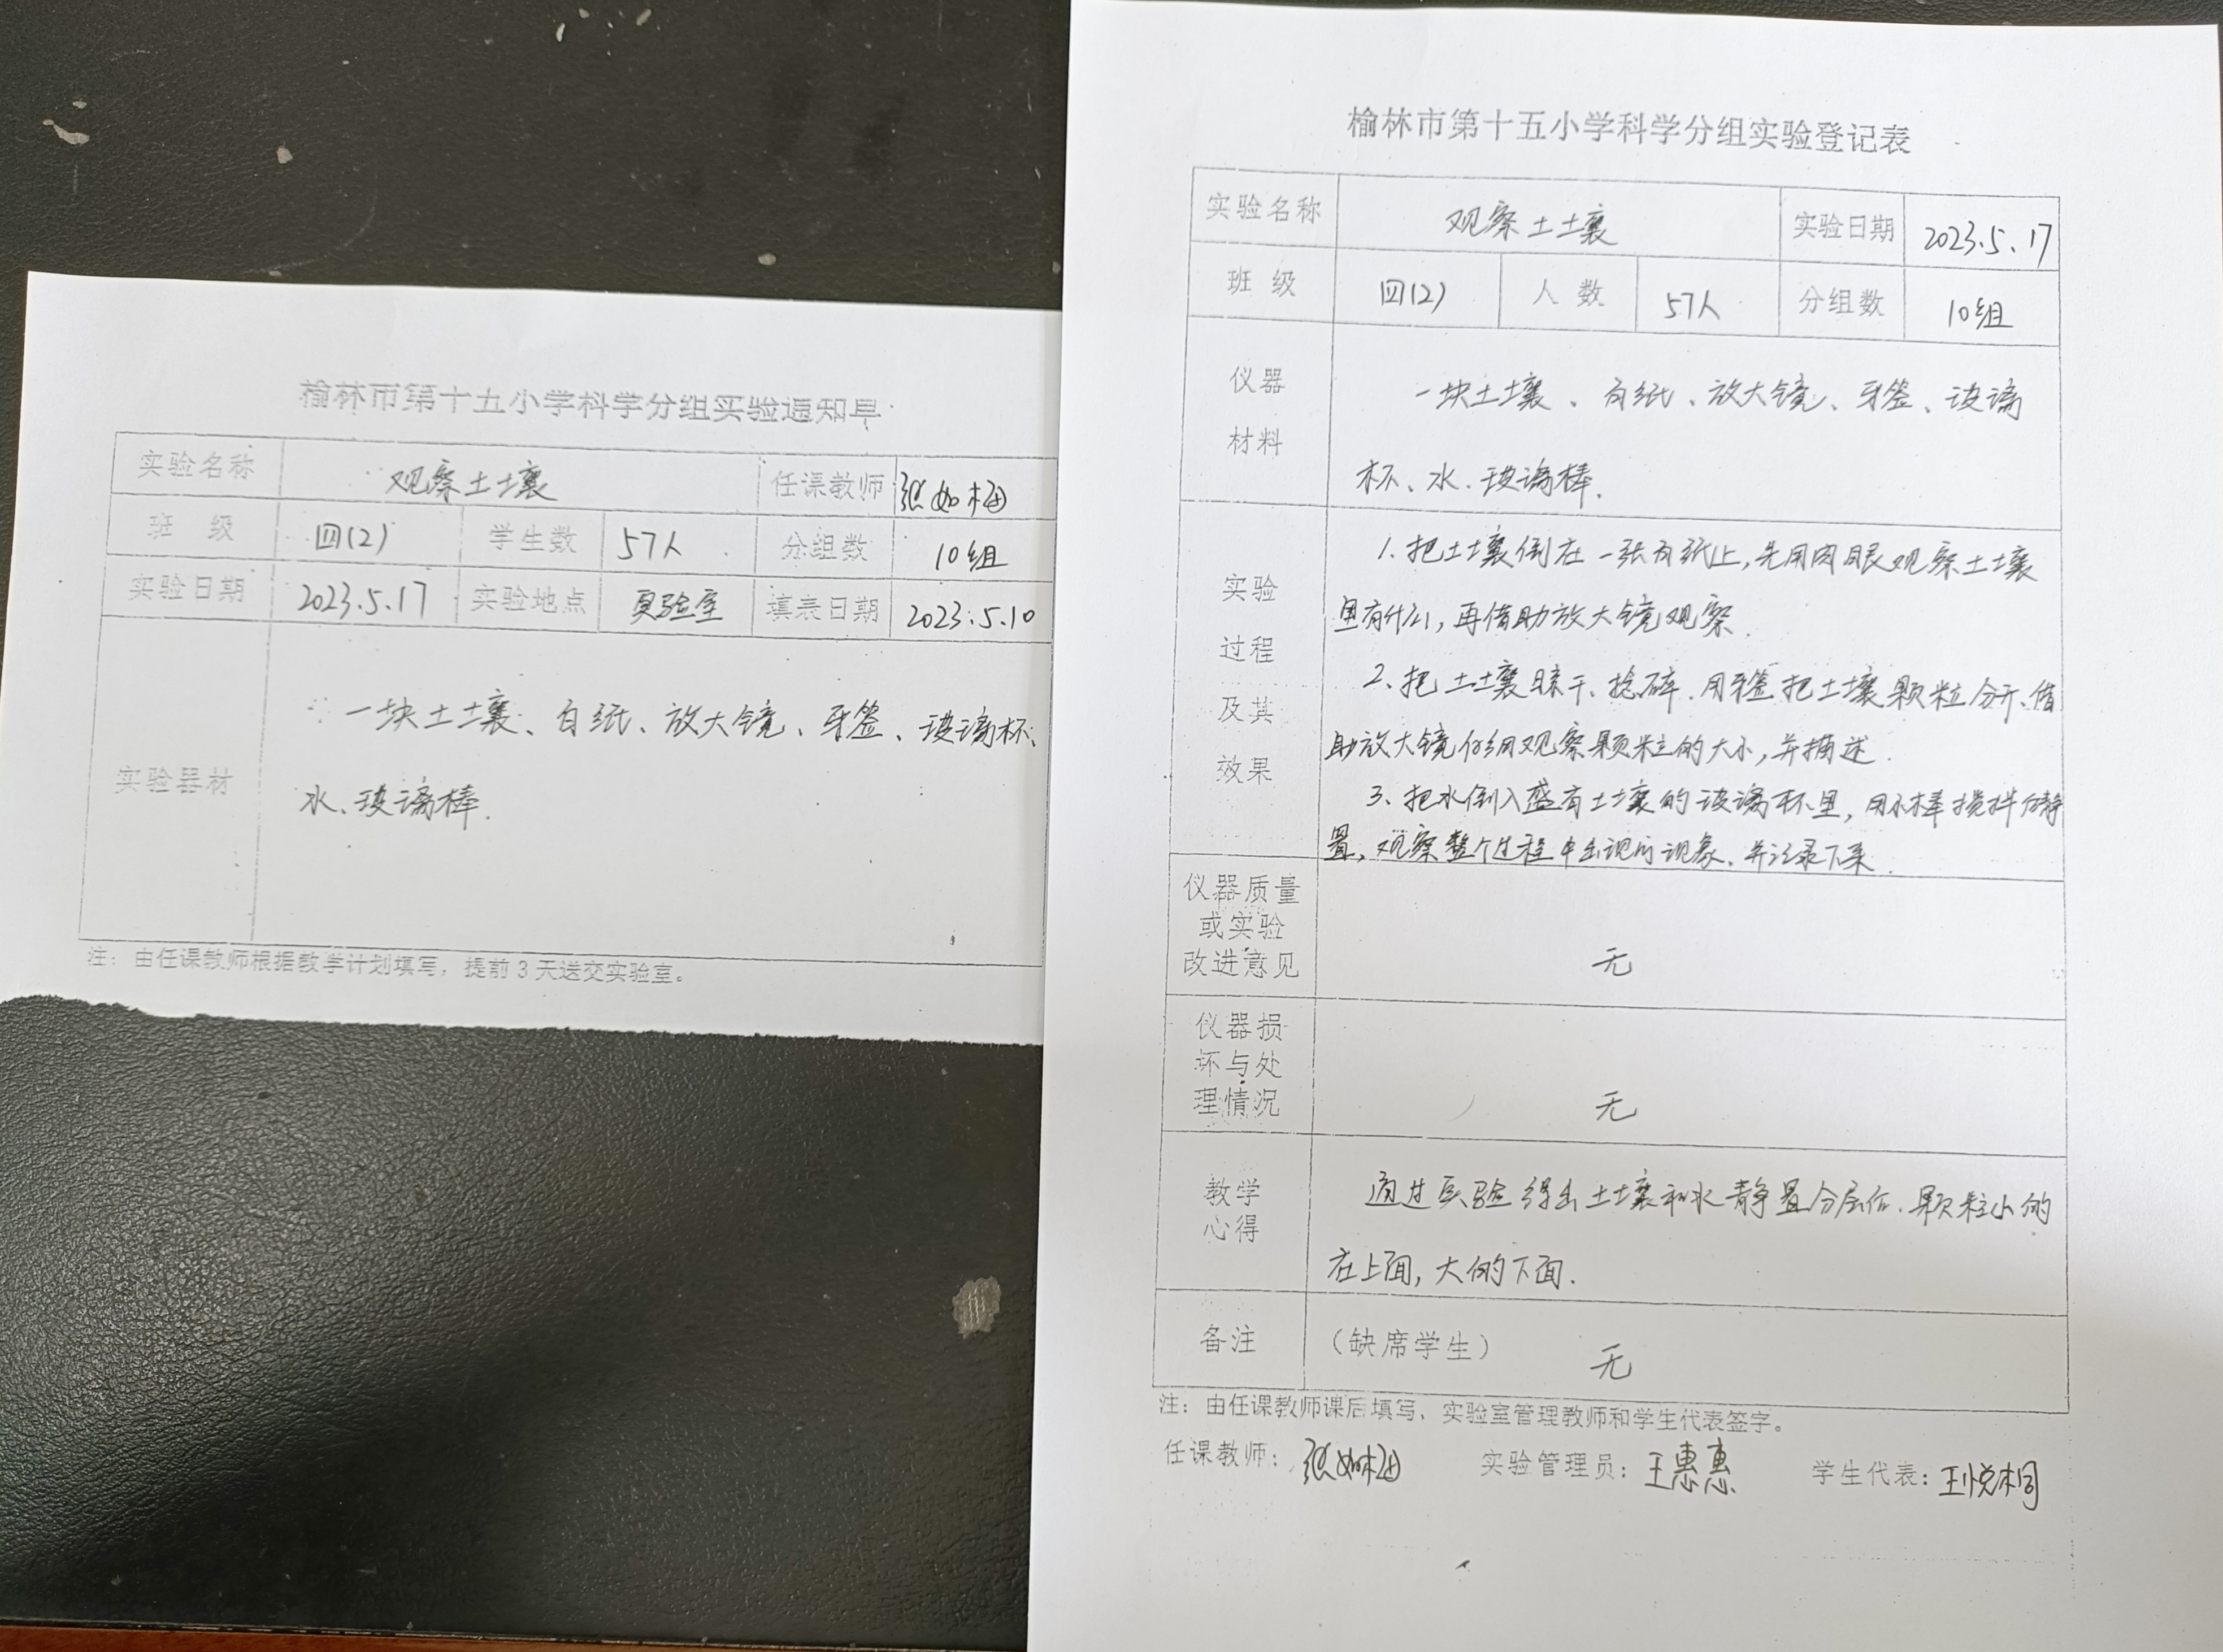 榆林市第十五小学科学分组实验通知单
实验名称 观察土壤 任课教师 张如梅
班 级 四(2) 学生数 57人 分组数 10组
实验日期 2023.5.17 实验地点 实验室 填表日期 2023.5.10
实验器材
一块土壤、白纸、放大镜、牙签、玻璃杯、
水、玻璃棒.
注：由任课教师根据教学计划填写，提前3天送交实验室。
榆林市第十五小学科学分组实验登记表
实验名称 观察土壤 实验日期 2023.5.17
班 级 四(2) 人 数 57人 分组数 10组
仪器
材料
一块土壤、白纸、放大镜、牙签、玻璃
杯、水、玻璃棒.
实验
过程
及其
效果
1.把土壤倒在一张白纸上,先用肉眼观察土壤
里有什么,再借助放大镜观察.
2、把土壤晾干、捻碎.用牙签把土壤颗粒分开、借
助放大镜仔细观察颗粒的大小,并描述.
3、把水倒入盛有土壤的玻璃杯里,用小棒搅拌后静
置,观察整个过程中出现的现象、并记录下来.
仪器质量
或实验
改进意见
无
仪器损
坏与处
理情况
无
教学
心得
通过实验得出土壤和水静置分层后.颗粒小的
在上面,大的下面.
备注 （缺席学生） 无
注：由任课教师课后填写、实验室管理教师和学生代表签字。
任课教师：张如梅 实验管理员：王惠惠 学生代表：王悦桐